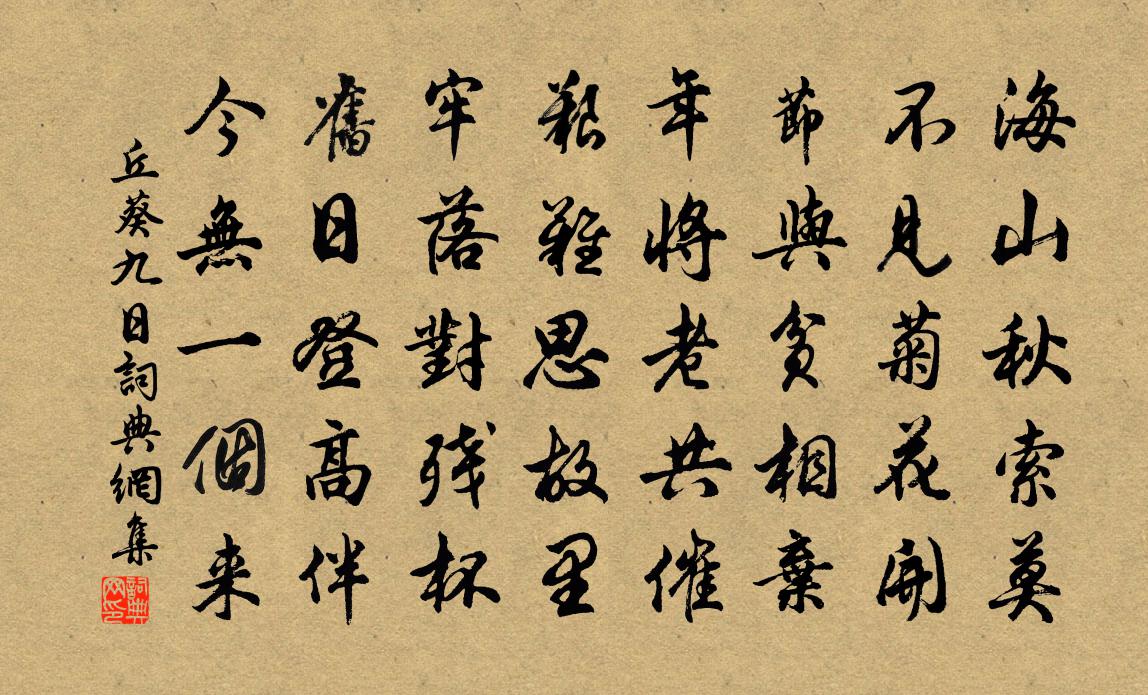 海山秋索莫
不見菊花開
節與貧相棄
年將老共催
艱難思故里
牢落對残杯
舊日登高伴
今無一個来
丘葵九日詞典網集
詞典网印